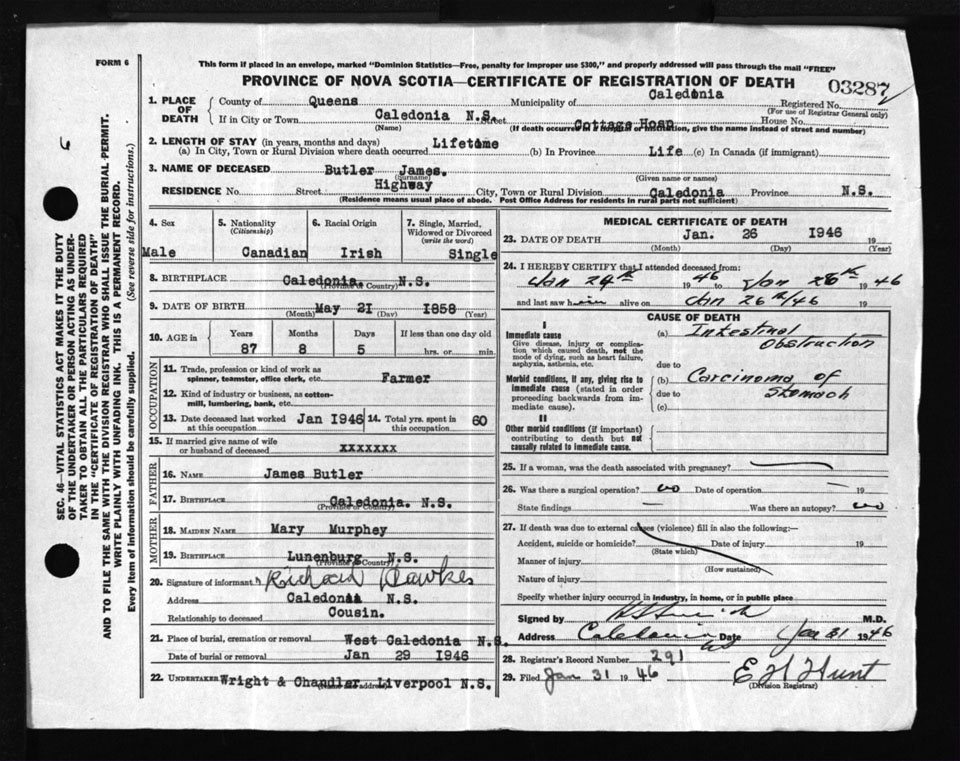 FORM 6
This form if placed in an envelope, marked "Dominion Statistics—Free, penalty for improper use $300," and properly addressed will pass through the mail "FREE"
PROVINCE OF NOVA SCOTIA—CERTIFICATE OF REGISTRATION OF DEATH
03287
1. PLACE OF DEATH
County of Queens Municipality of Caledonia Registered No.
(For use of Registrar General only)
If in City or Town Caledonia N.S. Street Cottage Hosp House No.
(Name) (If death occurred in a hospital or institution, give the name instead of street and number)
2. LENGTH OF STAY (in years, months and days)
(a) In City, Town or Rural Division where death occurred Lifetome (b) In Province Life (c) In Canada (if immigrant)
3. NAME OF DECEASED Butler James.
(Surname) (Given name or names)
RESIDENCE No. Street Highway City, Town or Rural Division Caledonia Province N.S.
(Residence means usual place of abode. Post Office Address for residents in rural parts not sufficient)
4. Sex 5. Nationality 6. Racial Origin 7. Single, Married, Widowed or Divorced
(Citizenship) (write the word)
Male Canadian Irish Single
8. BIRTHPLACE Caledonia, N.S.
(Province or Country)
9. DATE OF BIRTH May 21 1858
(Month) (Day) (Year)
10. AGE in Years Months Days If less than one day old
87 8 5 hrs. or min.
OCCUPATION
11. Trade, profession or kind of work as spinner, teamster, office clerk, etc. Farmer
12. Kind of industry or business, as cotten-mill, lumbering, bank, etc.
13. Date deceased last worked at this occupation Jan 1946 14. Total yrs. spent in this occupation 60
15. If married give name of wife or husband of deceased xxxxxxx
FATHER
16. NAME James Butler
17. BIRTHPLACE Caledonia. N.S.
(Province or Country)
MOTHER
18. MAIDEN NAME Mary Murphey
19. BIRTHPLACE Lunenburg N.S.
(Province or Country)
20. Signature of informant Richard Dawkes
Address Caledonia N.S.
Relationship to deceased Cousin.
21. Place of burial, cremation or removal West Caledonia N.S.
Date of burial or removal Jan 29 1946
22. UNDERTAKER Wright & Chandler Liverpool N.S.
(Name and address)
MEDICAL CERTIFICATE OF DEATH
23. DATE OF DEATH Jan. 26 1946 19
(Month) (Day) (Year)
24. I HEREBY CERTIFY that I attended deceased from:
Jan 24th 1946 to Jan 26th 1946
and last saw him alive on Jan 26th/46 19
CAUSE OF DEATH
I
Immediate cause
Give disease, injury or complication which caused death, not the mode of dying, such as heart failure, asphyxia, asthenia, etc.
(a) Intestinal Obstruction
due to
Morbid conditions, if any, giving rise to immediate cause (stated in order proceeding backwards from immediate cause).
(b) Carcinoma of Stomach
due to
(c)
II
Other morbid conditions (if important) contributing to death but not causally related to immediate cause.
25. If a woman, was the death associated with pregnancy?
26. Was there a surgical operation? no Date of operation 19
State findings Was there an autopsy? no
27. If death was due to external causes (violence) fill in also the following:—
Accident, suicide or homicide? Date of injury 19
(State which)
Manner of injury
(How sustained)
Nature of injury
Specify whether injury occurred in industry, in home, or in public place
Signed by M.D.
Address Caledonia NS Date Jan 31 1946
28. Registrar's Record Number 291
29. Filed Jan 31 1946 E H Hunt
(Division Registrar)
SEC. 46—VITAL STATISTICS ACT MAKES IT THE DUTY
OF THE UNDERTAKER OR PERSON ACTING AS UNDER-
TAKER TO OBTAIN ALL THE PARTICULARS REQUIRED
IN THE "CERTIFICATE OF REGISTRATION OF DEATH"
AND TO FILE THE SAME WITH THE DIVISION REGISTRAR WHO SHALL ISSUE THE BURIAL PERMIT.
WRITE PLAINLY WITH UNFADING INK. THIS IS A PERMANENT RECORD.
Every item of information should be carefully supplied. (See reverse side for instructions.)
6